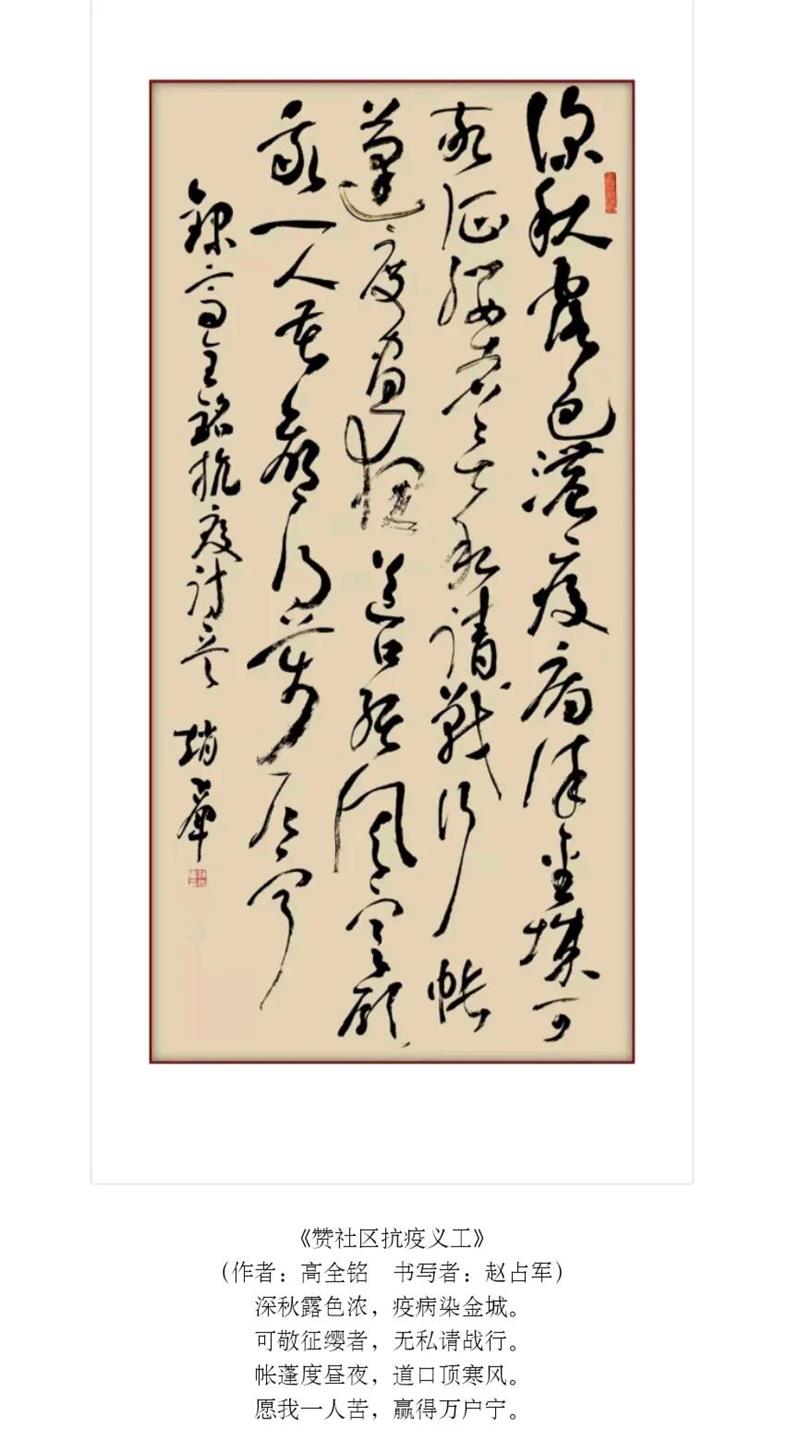 深秋露色濃疫病染金城可
敬征缨者無私請戰行帐
蓬度昼夜道口顶寒風愿
我一人苦赢得萬户宁
錄高全銘抗疫诗 趙軍
《赞社区抗疫义工》
(作者：高全铭　书写者：赵占军)
深秋露色浓，疫病染金城。
可敬征缨者，无私请战行。
帐蓬度昼夜，道口顶寒风。
愿我一人苦，赢得万户宁。